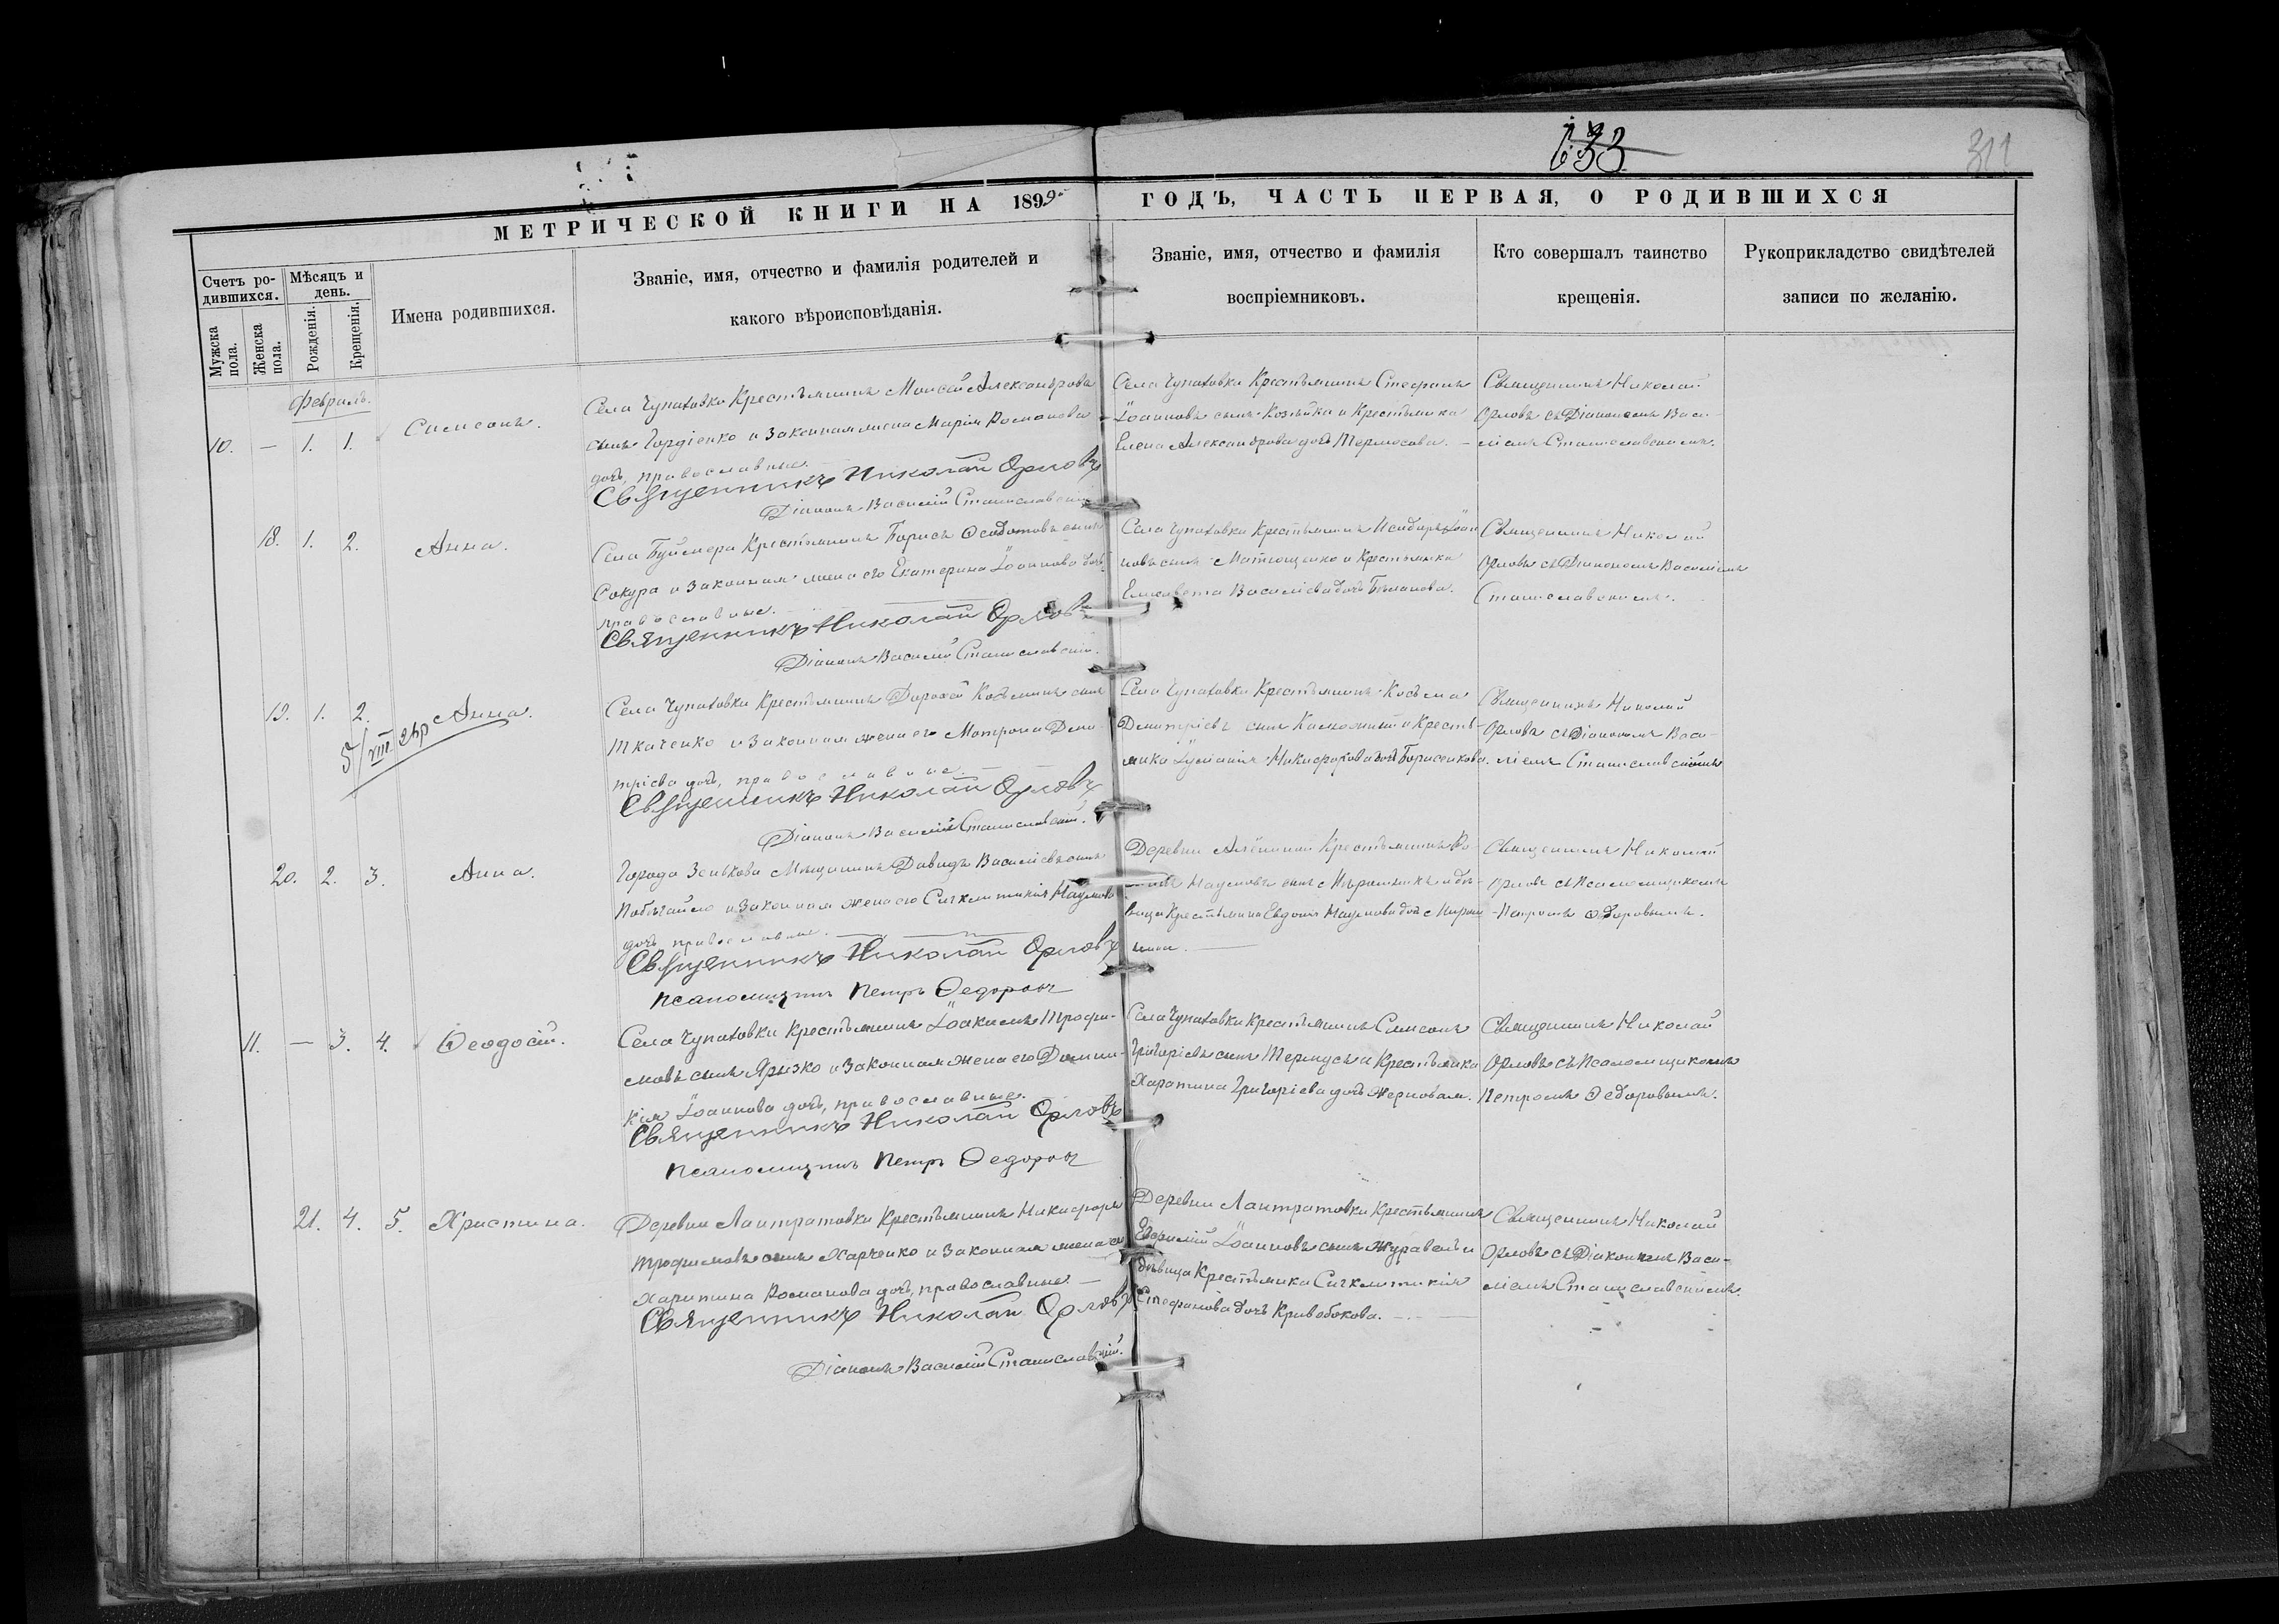 633
311
МЕТРИЧЕСКОЙ КНИГИ НА 1899 ГОДЪ, ЧАСТЬ ПЕРВАЯ, О РОДИВШИХСЯ
Счетъ родившихся.
Мужска пола.
Женска пола.
Мѣсяцъ и день.
Рожденія.
Крещенія.
Имена родившихся.
Званіе, имя, отчество и фамилія родителей и
какого вѣроисповѣданія.
Званіе, имя, отчество и фамилія
воспріемниковъ.
Кто совершалъ таинство
крещенія.
Рукоприкладство свидѣтелей
записи по желанію.
Февраль.
10. — 1. 1.
Симеонъ.
Села Чупаховки Крестьянинъ Моисей Александровъ
сынъ Гордіенко и законная жена Марія Романова
дочь, православные.
Священникъ Николай Орловъ
Діаконъ Василій Станиславскій
Села Чупаховки Крестьянинъ Стефанъ
Іоанновъ сынъ Козѣйка и Крестьянка
Елена Александрова дочь Термосова. —
Священникъ Николай
Орловъ съ Діакономъ Васи-
ліемъ Станиславскимъ.
18. 1. 2.
Анна.
Села Буймера Крестьянинъ Борисъ Ѳеодотовъ сынъ
Сокура и законная жена его Екатерина Іоаннова дочь
православные.
Священникъ Николай Орловъ
Діаконъ Василій Станиславскій.
Села Чупаховки Крестьянинъ Исидоръ Іоан
новъ сынъ Матющенко и Крестьянка
Елисавета Василіева дочь
Священникъ Николай
Орловъ съ Діакономъ Василіемъ
Станиславскимъ.
19. 1. 2.
5/VIII 24р
Анна.
Села Чупаховки Крестьянинъ Дорофей Козьминъ сынъ
Ткаченко и законная жена его Матрона Дими-
тріева дочь, православные.
Священникъ Николай Орловъ
Діаконъ Василій Станиславскій.
Села Чупаховки Крестьянинъ Косьма
Димитріевъ сынъ и Кресть-
янка Іуліанія Никифорова дочь Борисенкова.
Священникъ Николай
Орловъ съ Діакономъ Васи-
ліемъ Станиславскимъ
20. 2. 3.
Анна.
Города Зенькова Мѣщанинъ Давидъ Василіевъ сынъ
Побѣгайло и законная жена его Сигклитикія Наумова
дочь православные.
Священникъ Николай Орловъ
Псаломщикъ Петръ Ѳедоровъ
Деревни Крестьянинъ
Наумовъ сынъ и дѣ-
вица Крестьянка Евдокія Наумова дочь
Священникъ Николай
Орловъ съ Псаломщикомъ
Петромъ Ѳедоровымъ.
11. — 3. 4.
Ѳеодосій.
Села Чупаховки Крестьянинъ Іоакимъ Трофи-
мовъ сынъ Ярызко и законная жена его Домни-
кія Іоаннова дочь, православные.
Священникъ Николай Орловъ
Псаломщикъ Петръ Ѳедоровъ
Села Чупаховки Крестьянинъ Симеонъ
Григоріевъ сынъ Термусъ и Крестьянка
Харитина Григоріева дочь Жерновая.
Священникъ Николай
Орловъ съ Псаломщикомъ
Петромъ Ѳедоровымъ.
21. 4. 5.
Христина.
Деревни Лантратовки Крестьянинъ Никифоръ
Трофимовъ сынъ Харченко и законная жена его
Харитина Романова дочь, православные —
Священникъ Николай Орловъ
Діаконъ Василій Станиславскій.
Деревни Лантратовки Крестьянинъ
Евфимій Іоанновъ сынъ Журавель и
дѣвица Крестьянка Сигклитикія
Стефанова дочь Кривобокова.
Священникъ Николай
Орловъ съ Діакономъ Васи-
ліемъ Станиславскимъ.